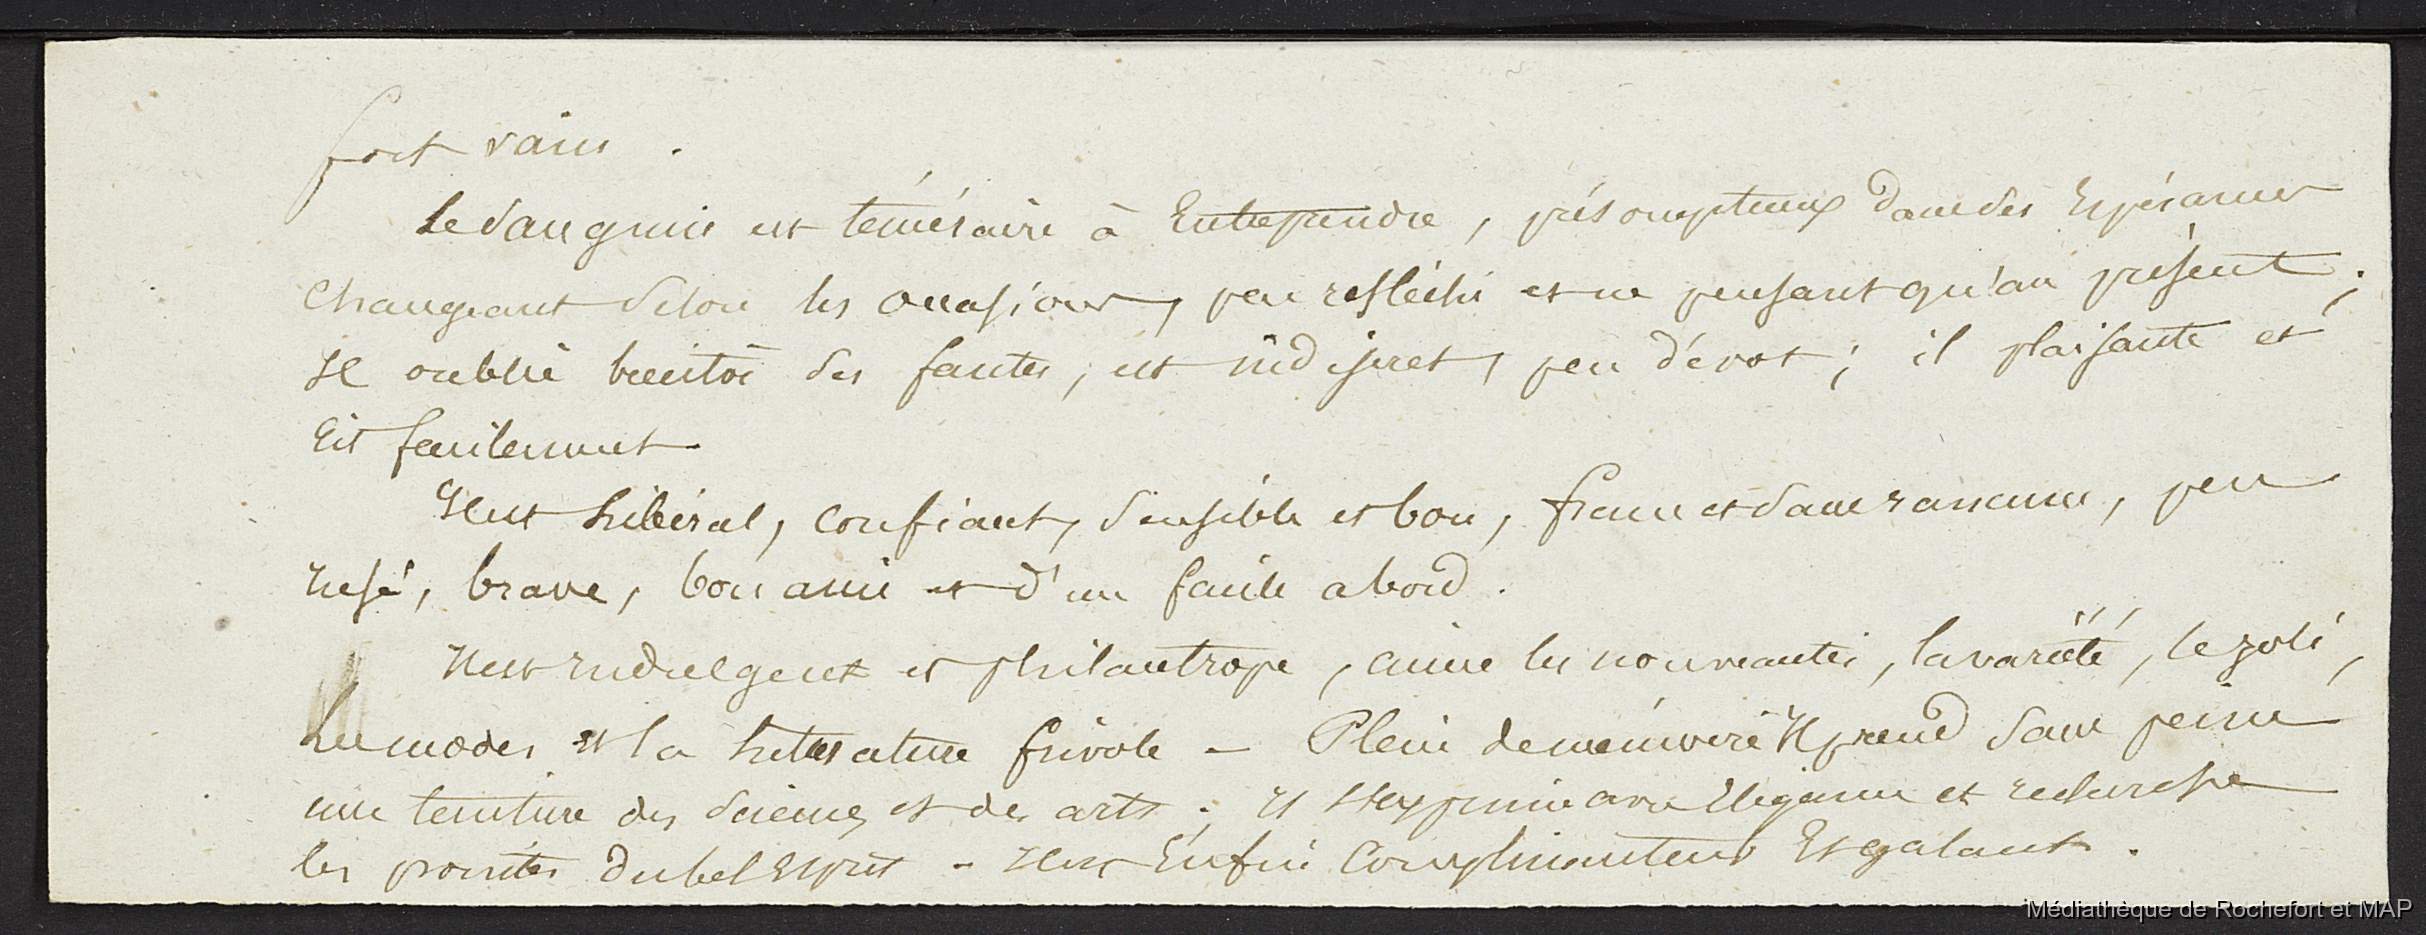 fort vain .
Le Sanguin est téméraire à Entreprendre , présomptueux dans ses Espérances
Changeant selon les occasions, peu refléchi et ne pensant qu'au présent ;
Il oublie bientôt ses fautes, est indiscret, peu dévot ; il plaisante et
Rit facilement
Il est libéral, confiant, sensible et bon, franc et sans rancune, peu
rusé, brave, bon ami et d'un facile abord .
Il est indulgent et philantrope, aime les nouveautés, la variété, le joli,
Les modes et la littérature frivole - Plein de mémoire Il prend sans peine
une teinture des sciences et des arts . Il s'exprime avec Elégance et recherche
les pointes du bel Esprit - Il est Enfin Complimenteur Et galant .
Médiathèque de Rochefort et MAP